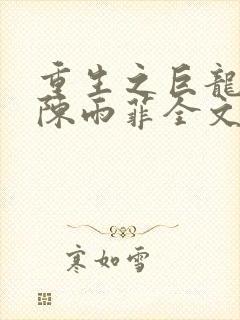 重生之巨龍
陳雨菲全文
寒如雪